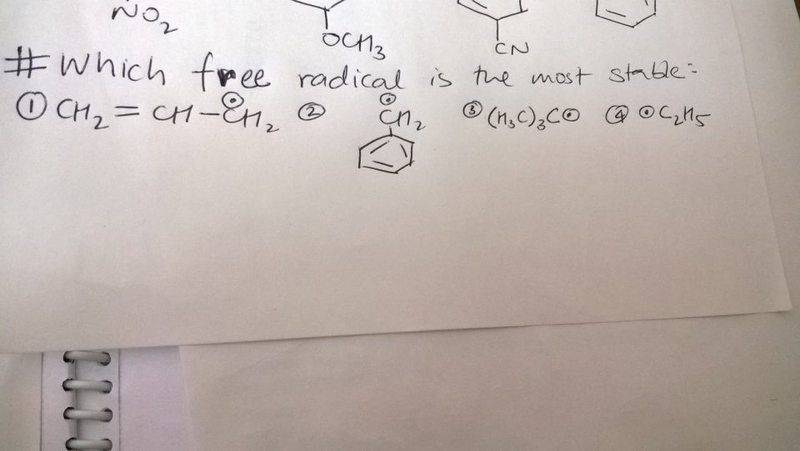 NO2
OCH3
CN
# Which free radical is the most stable:
① CH2 = CH - CH2 ② CH2 ③ (H3C)3C ④ C2H5